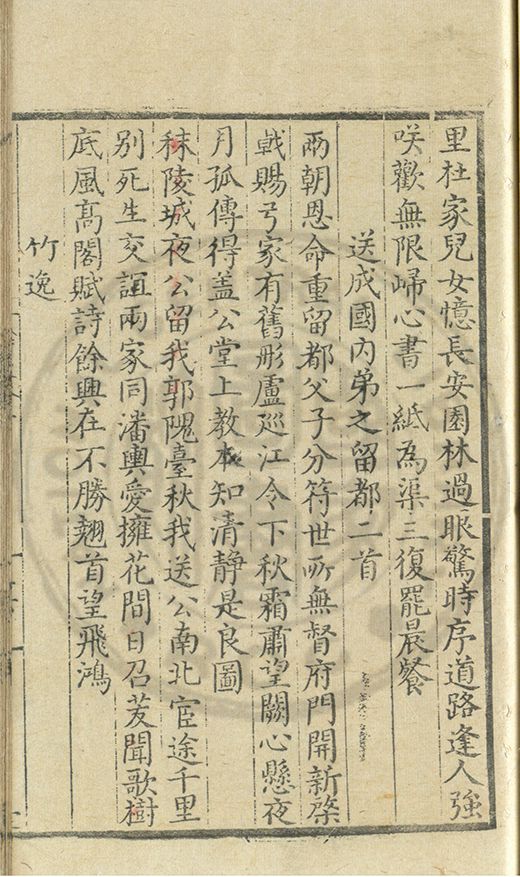 里杜家兒女憶長安園林過眼驚時序道路逢人強
咲歡無限歸心書一紙為渠三復罷晨餐
送成國內弟之留都二首
兩朝恩命重留都父子分符世所無督府門開新棨
戟賜弓家有舊彤盧廵江令下秋霜肅望闕心懸夜
月孤傳得盖公堂上教本知清靜是良圖
秣陵城夜公留我郭隗臺秋我送公南北宦途千里
别死生交誼兩家同潘輿愛擁花間日召茇聞歌樹
底風高閣賦詩餘興在不勝翹首望飛鴻
竹逸